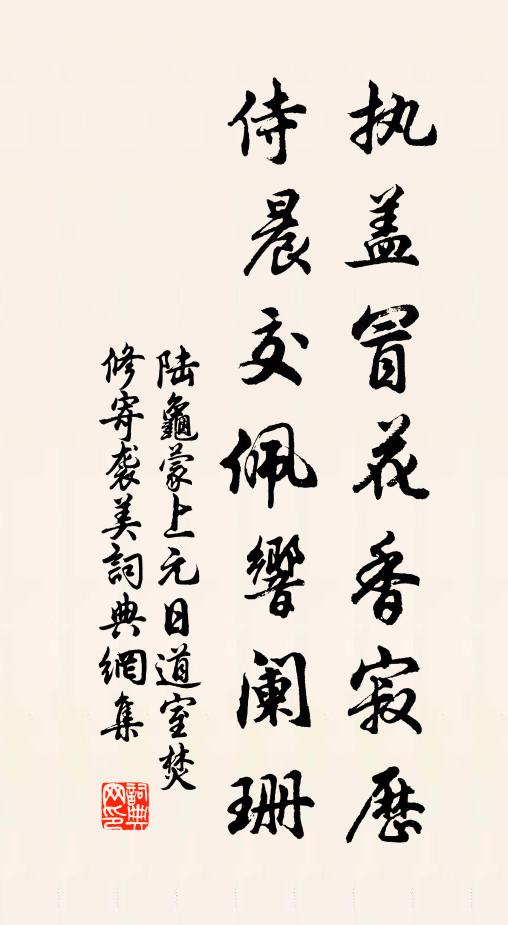 执盖冒花香寂歷
侍晨交佩響阑珊
陆龜蒙上元日道室焚
修寄袭美詞典網集
詞典网印